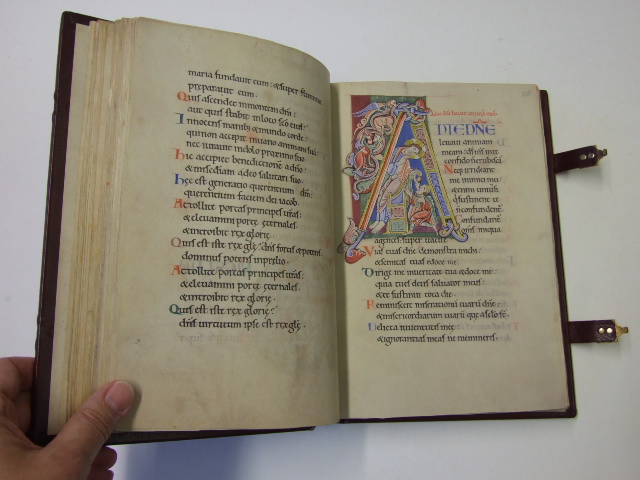 maria fundauit eum: & super flumina
preparauit eum.
Quis ascendet in montem dni:
aut quis stabit in loco sco eius.
Innocens manib; & mundo corde:
qui non accepit in uano animam suã
nec iurauit in dolo proximo suo.
hic accipiet benedictione a dño:
& misediam a deo salutari suo.
hęc est generatio querentium
querentium faciem dei iacob.
Attollite portas principes uras:
& eleuamini portę ęternales.
& introibit rex glorię.
Quis est iste rex glę: dns fortis & potens
dominus potens in prelio.
Attollite portas principes uras:
& eleuamini portę ęternales.
& introibit rex glorię.
Quis est iste rex glorię:
dns uirtutum ipse est rex glę.
AD TE DNE
leuaui animam
meam: ds ms in te
confido n erubescã
Neq; irrideant
me inimici mei:
& enim uniuersi
qui sustinent te
n confundent
Confundant
iniqua
agentes: super uacue
Vias tuas dne demonstra mihi:
& semitas tuas edoce me.
Dirige me in ueritate tua & doce me:
quia tu es deus saluator meus
& te sustinui tota die.
Reminiscere miserationũ tuarũ dne:
& misericordiarum tuarũ que a sclo sẽ.
Delicta iuuentutis meę:
& ignorantias meas ne memineris.